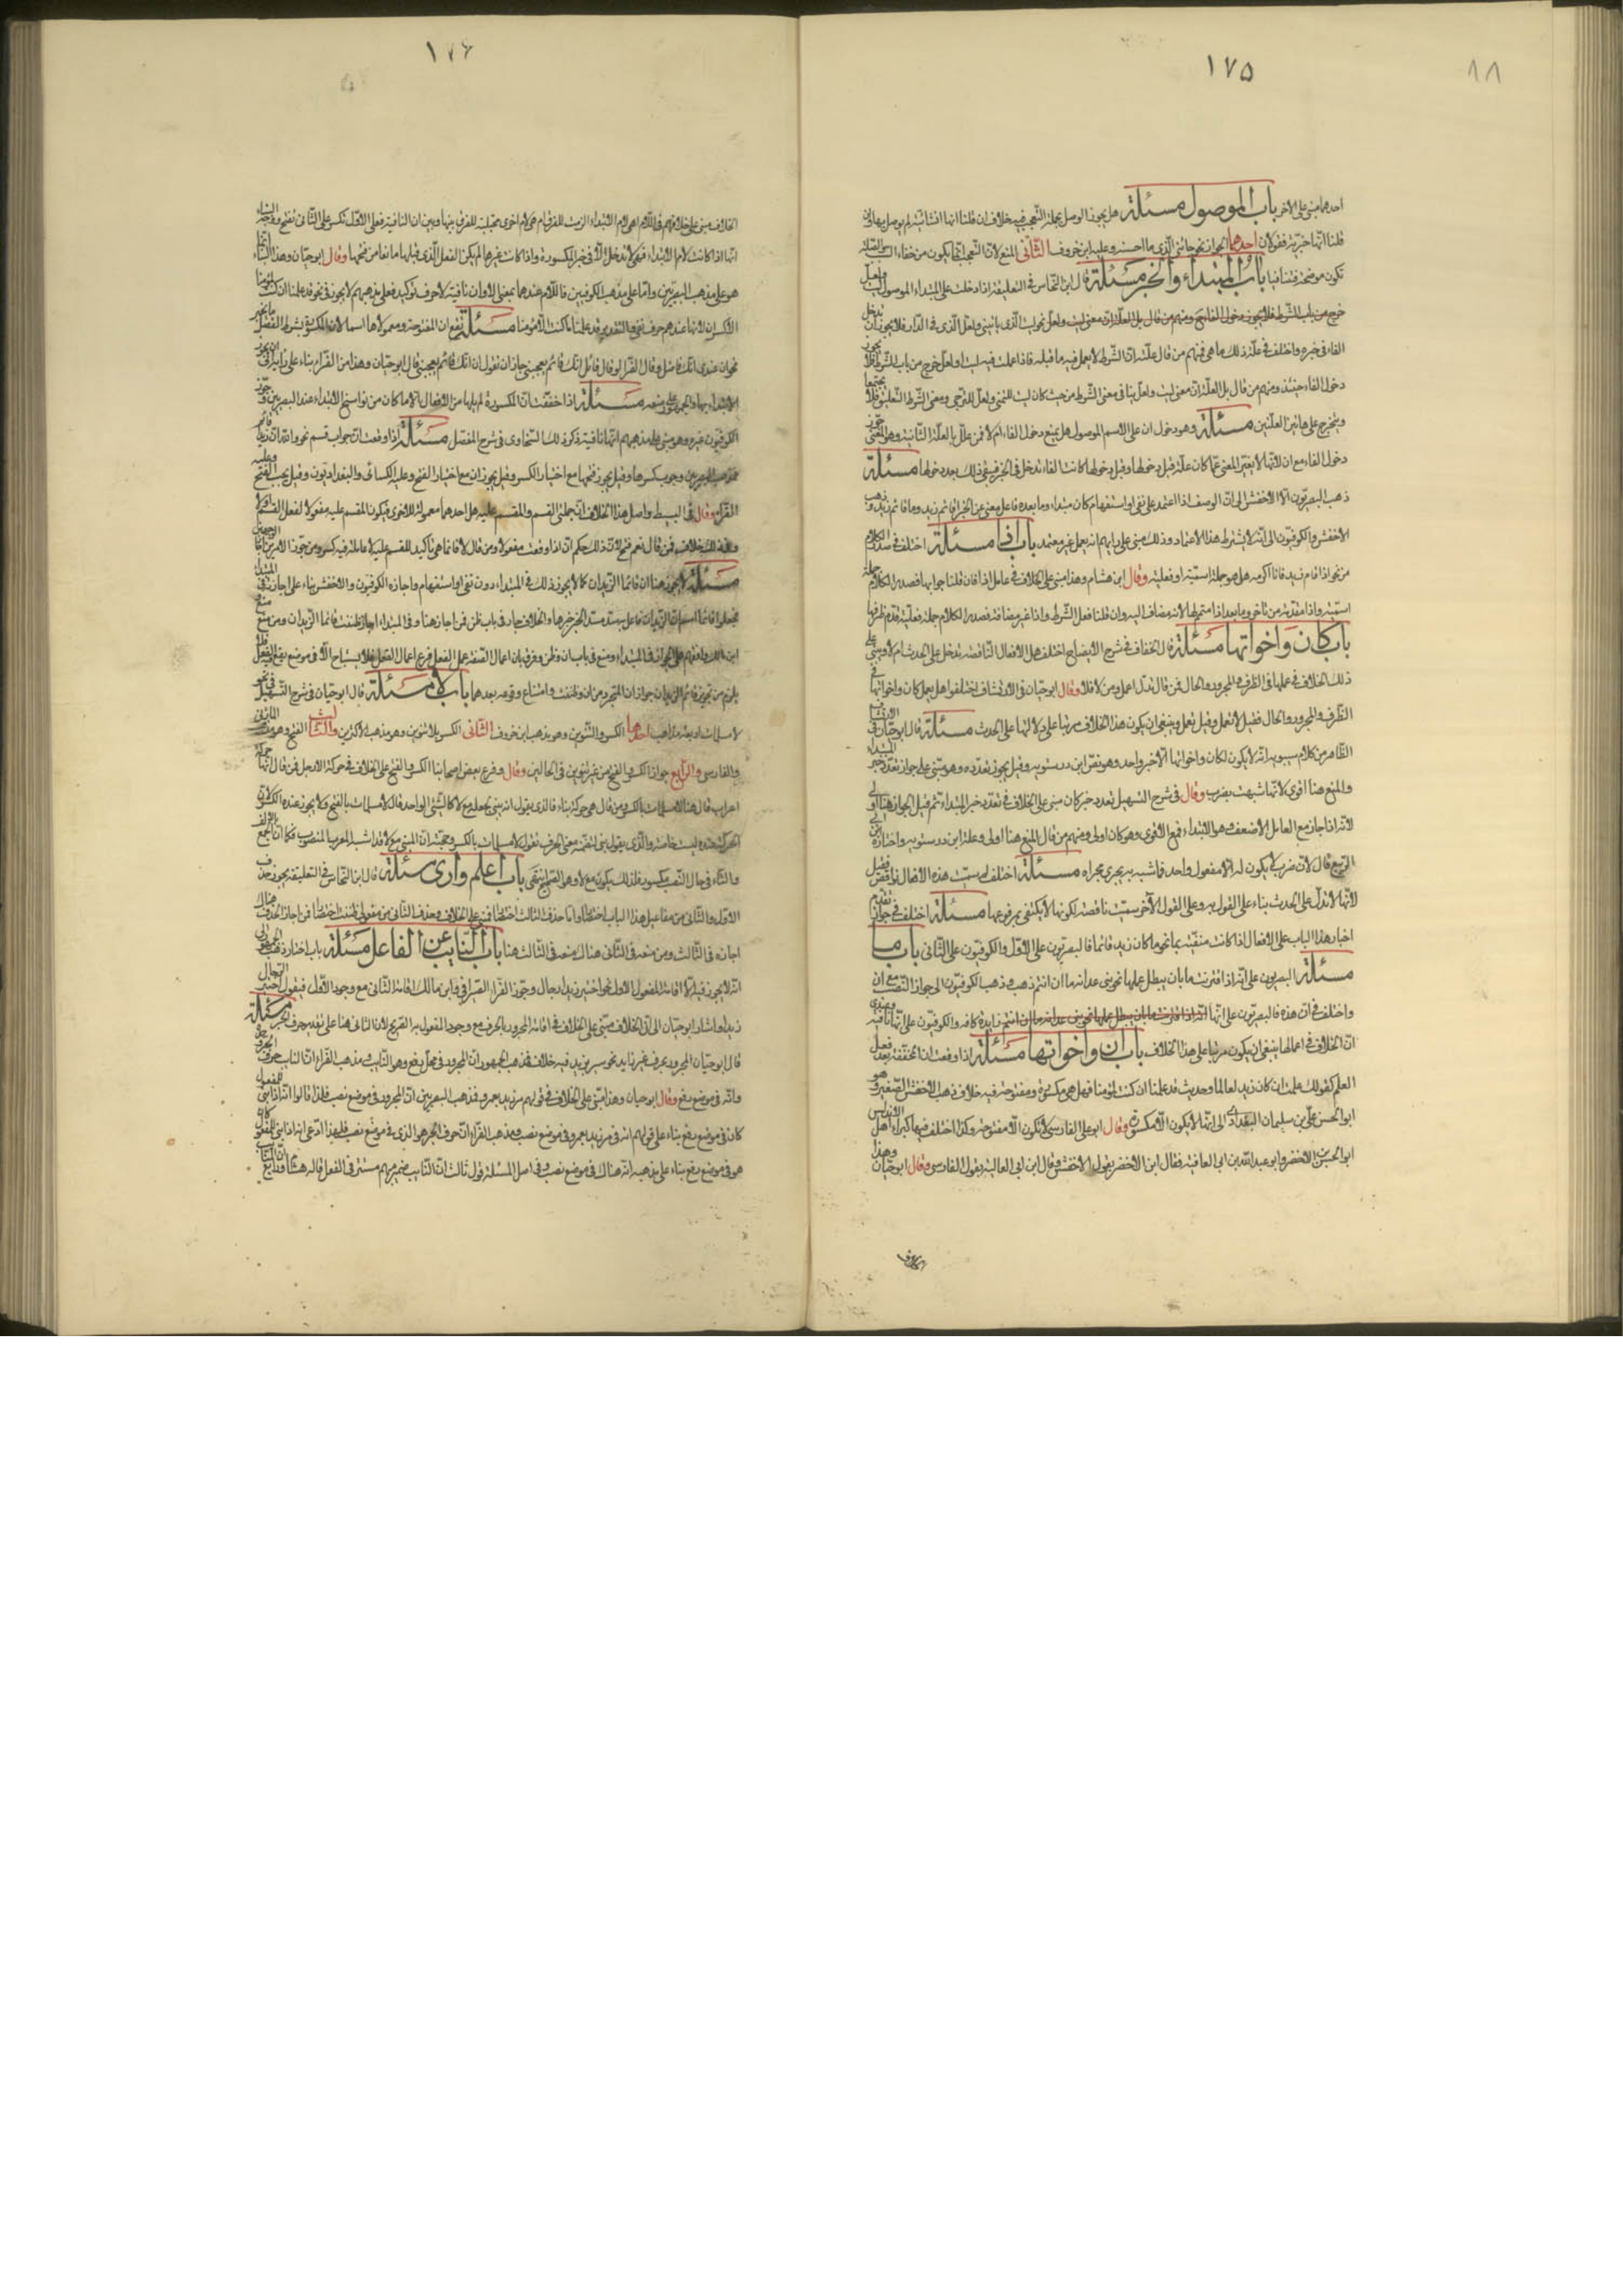 ١٧٥
٨٨
احدهما مبنى على الاخر باب الموصول مسئلة هل يجوز الوصل بجملة التعجب فيه خلاف ان قلنا انها انشائية لم يوصل بها وان
قلنا انها خبرية فقولان احدهما الجواز نحو جائنى الذى ما احسنه وعليه ابن خروف الثانى المنع لان التعجب انما يكون من خفاء السبب والصلة
تكون موضحة فتنافيا باب المبتداء والخبر مسئلة قال ابن النحاس فى التعليقة اذا دخلت على المبتداء الموصول ليت ولعل
خرج من باب الشرط فلا يجوز دخول الفا نحو ليت الذى ياتينى ولعل الذى فى الدار فلا يجوز ان تدخل
الفا فى خبره واختلف فى علة ذلك ما هى فمنهم من قال علته ان الشرط لا يعمل فيه ما قبله فاذا عملت فيه ليت او لعل خرج من باب الشرط فلا يجوز
دخول الفاء حينئذ ومنهم من قال بل العلة ان معنى ليت ولعل ينافى معنى الشرط من حيث كان ليت للتمنى ولعل للترجى ومعنى الشرط التعليق فلا يجتمعا
ويتخرج على هاتين العلتين مسئلة وهو دخول ان على الاسم الموصول هل يمنع دخول الفاء ام لا فمن علل بالعلة الثانية وهو المعنى جوز
دخول الفاء مع ان لانها لا تغير المعنى عما كان عليه قبل دخولها وقبل دخولها كانت الفاء تدخل فى الخبر فيبقى ذلك بعد دخولها مسئلة
ذهب البصريون الا الاخفش الى ان الوصف اذا اعتمد على نفى او استفهام كان مبتداء وما بعده فاعل مغنى عن الخبر اقائم زيد وما قائم زيد وذهب
الاخفش والكوفيون الى انه لا يشترط هذا الاعتماد وذلك مبنى على رايهم انه يعمل غير معتمد باب اذا مسئلة اختلف فى صدر الكلام
من نحو اذا قام زيد فانا اكرمه هل هو جملة اسمية او فعلية وقال ابن هشام وهذا مبنى على الخلاف فى عامل اذا فان قلنا جوابها فصدر الكلام جملة
اسمية واذا مقدمة من تاخر وما بعد اذا متمم لها لانه مضاف اليه وان قلنا فعل الشرط واذا غير مضافة فصدر الكلام جملة فعلية قدم ظرفها
باب كان واخواتها مسئلة قال الخفاف فى شرح الايضاح اختلف هل الافعال الناقصة تدل على الحدث ام لا وينبنى على
ذلك الخلاف فى عملها فى الظرف والمجرور والحال فمن قال تدل اعمل ومن لا فلا وقال ابو حيان فى الارتشاف اختلفوا هل يعمل كان واخواتها فى
الظرف والمجرور والحال فقيل لا تعمل وقيل تعمل وينبغى ان يكون هذا الخلاف مرتبا على دلالتها على الحدث مسئلة قال ابو حيان فى الارتشاف
الظاهر من كلام سيبويه انه لا يكون لكان واخواتها الا خبر واحد وهو نص ابن درستويه وقيل يجوز تعدده وهو مبنى على جواز تعدد خبر المبتداء
والمنع هنا اقوى لانها شبهت بضرب وقال فى شرح التسهيل تعدد خبر كان مبنى على الخلاف فى تعدد خبر المبتداء ثم قيل الجواز هنا اولى
لانه اذا جاز مع العامل الاضعف هو الابتداء فمع الاقوى وهو كان اولى ومنهم من قال المنع هنا اولى وعليه ابن درستويه واختاره ابن ابى
الربيع قال لان ضرب لا يكون له الا مفعول واحد فما شبه به يجرى مجراه مسئلة اختلف لم سميت هذه الافعال نواقص فقيل
لانها لا تدل على الحدث بناء على القول به وعلى القول الاخر سميت ناقصة لكونها لا تكتفى بمرفوعها مسئلة اختلف فى جواز تقديم
اخبار هذا الباب على الافعال اذا كانت منفية بما نحو ما كان زيد قائما فالبصريون على الاول والكوفيون على الثانى باب ما
مسئلة البصريون على انه اذا اقترنت ما بان يبطل عملها نحو بنى غدانة ما ان انتم ذهب وذهب الكوفيون الى جواز النصب مع ان
واختلف فى ان هذه فالبصريون على انها زايدة كافة والكوفيون على انها نافية وعندى
ان الخلاف فى اعمالها ينبغى ان يكون مرتبا على هذا الخلاف باب ان واخواتها مسئلة اذا وقعت ان المخففة بعد فعل
العلم كقولك علمت ان كان زيد لعالما وحديث قد علمنا ان كنت لمؤمنا فهل هى مكسورة او مفتوحة فيه خلاف ذهب الاخفش الصغير وهو
ابو الحسن على بن سليمان البغدادى الى انها لا يكون الا مكسورة وقال ابو على الفارسى لا تكون الا مفتوحة وكذا اختلف فيها كبراء اهل الاندلس
ابو الحسن بن الاخضر وابو عبد الله بن ابى العافية فقال ابن الاخضر بقول الاخفش وقال ابن ابى العافية بقول الفارسى وقال ابو حيان وهذا
١٧٦
الخلاف مبنى على خلافهم فى اللام اهى لام الابتداء الزمت للفرق ام هى لام اخرى مجتلبة للفرق بينها وبين ان النافية فعلى الاول تكسر وعلى الثانى تفتح ووجه البناء
انها اذا كانت لام الابتداء فهى لا تدخل الا فى خبر المكسورة واذا كانت غيرها لم يكن الفعل الذى قبلها مانعا من فتحها وقال ابو حيان وهذا البناء انما
هو على مذهب البصريين واما على مذهب الكوفيين فاللام عندهم بمعنى الا وان نافية لا حرف توكيد فعلى مذهبهم لا يجوز فى نحو قد علمنا ان كنت لمؤمنا
الا كسر ان لانها عندهم حرف نفى والتقدير قد علمنا ما كنت الا مؤمنا مسئلة تقع ان المفتوحة ومعمولاها اسما لان المكسورة بشرط الفصل بالخبر
نحو ان عندى انك فاضل وقال الفرا لو قال قائل انك قائم يعجبنى جاز ان تقول ان انك قائم يعجبنى قال ابو حيان وهذا من الفراء بناء على رايه فى ان يجوز
الابتداء بها والجمهور على منعه مسئلة اذا خففت ان المكسورة لم يلها من الافعال الا ما كان من نواسخ الابتداء عند البصريين وجوز
الكوفيون غيره وهو مبنى على مذهبهم انها نافية ذكر ذلك السخاوى فى شرح المفصل مسئلة اذا وقعت ان جواب قسم نحو والله ان زيدا قائم
فمذهب البصريين وجوب كسرها وقيل يجوز فتحها مع اختيار الكسر وقيل يجوزان مع اختيار الفتح وعليه الكسائى والبغداديون وقيل يجب الفتح وعليه
الفراء وقال فى البسيط واصل هذا الخلاف ان جملتى القسم والمقسم عليه هل احدهما معمولة للاخرى فيكون المقسم عليه مفعولا لفعل القسم اولا
وفى ذلك خلاف فمن قال نعم فتح لان ذلك حكم ان اذا وقعت مفعولا ومن قال لا فانما هى تاكيد للمقسم عليه لا عاملة فيه كسر ومن جوز الامرين اجاز الوجهين
مسئلة لا يجوز هنا ان قائما الزيدان كما لا يجوز ذلك فى المبتداء دون نفى او استفهام واجازه الكوفيون والاخفش بناء على اجازته فى المبتدا
فجعلوا قائما اسم ان الزيدان فاعل به سد مسد الخبر خبرها والخلاف جار فى باب ظن فمن اجاز هنا وفى المبتداء اجاز ظننت قائما الزيدان ومن منع منع
ابن مالك وافقهم على الجواز فى المبتداء ومنع فى باب ان وظن وفرق بان اعمال الصفة عمل الفعل فرع اعمال الفعل فلا يستباح الا فى موضع يقع فيه الفعل فلا
يلزم من تجويز قائم الزيدان جواز ان المتجرد من ان وظننت وامتناع وقوعه بعدهما باب لا مسئلة قال ابو حيان فى شرح التسهيل فى نحو
لا مسلمات اربعة مذاهب احدها الكسر والتنوين وهو مذهب ابن خروف الثانى الكسر بلا تنوين وهو مذهب الاكثرين والثالث الفتح وهو مذهب المازنى
والفارسى والرابع جواز الكسر والفتح من غير تنوين فى الحالين وقال وفرع بعض اصحابنا الكسر والفتح على الخلاف فى حركة لا رجل فمن قال انها حركة
اعراب قال هنا لا مسلمات بالكسر ومن قال هى حركة بناء فالذى يقول انه بنى لجعله مع لا كالشئ الواحد قال لا مسلمات بالفتح ولا يجوز عنده الكسر لان
الحركة عنده ليست خاصة والذى يقول بنى لتضمنه معنى الحرف نقول لا مسلمات بالكسر وحجته ان المبنى مع لا قد اشبه المعرب المنصوب فكما ان الجمع بالالف
والتاء فى حال النصب مكسور فلذلك يكون مع لا وهو الصحيح انتهى باب اعلم وارى مسئلة قال ابن النحاس فى التعليقة يجوز حذف
الاول والثانى من مفاعيل هذا الباب اختصارا واما حذف الثالث اختصارا فمبنى على الخلاف وحذف الثانى من مفعولى ظننت اختصارا فمن اجاز الحذف هناك
اجازه فى الثالث ومن منعه فى الثانى هناك منعه فى الثالث هنا باب النايب عن الفاعل مسئلة باب اختار ذهب الجمهور الى
انه لا يجوز فيه الا اقامة المفعول الاول نحو اختير زيد الرجال وجوز الفراء السيرافى وابن مالك اقامة الثانى مع وجود الاول فيقول اختير الرجال
زيدا واشار ابو حيان الى ان الخلاف مبنى على الخلاف فى اقامة المجرور بالحرف مع وجود المفعول به الصريح لان الثانى هنا على تقدير حرف الجر مسئلة
قال ابو حيان المجرور بحرف غير زايد نحو سير بزيد فيه خلاف فمذهب الجمهور ان المجرور فى محل رفع وهو النايب ومذهب الفراء ان النايب حرف الجر
وانه فى موضع رفع وقال ابو حيان وهذا مبنى على الخلاف فى قولهم مر زيد بعمرو فمذهب البصريين ان المجرور فى موضع نصب فلذا قالوا انه اذا بنى للمفعول
كان فى موضع رفع بناء على قولهم انه فى مر زيد بعمرو فى موضع نصب ومذهب الفراء ان حرف الجر هو الذى فى موضع نصب فلهذا ادعى انه اذا بنى للمفعول كان
هو فى موضع رفع بناء على مذهبه انه هناك فى موضع نصب وفى اصل المسئلة قول ثالث ان النايب ضمير مبهم مستتر فى الفعل قاله هشام